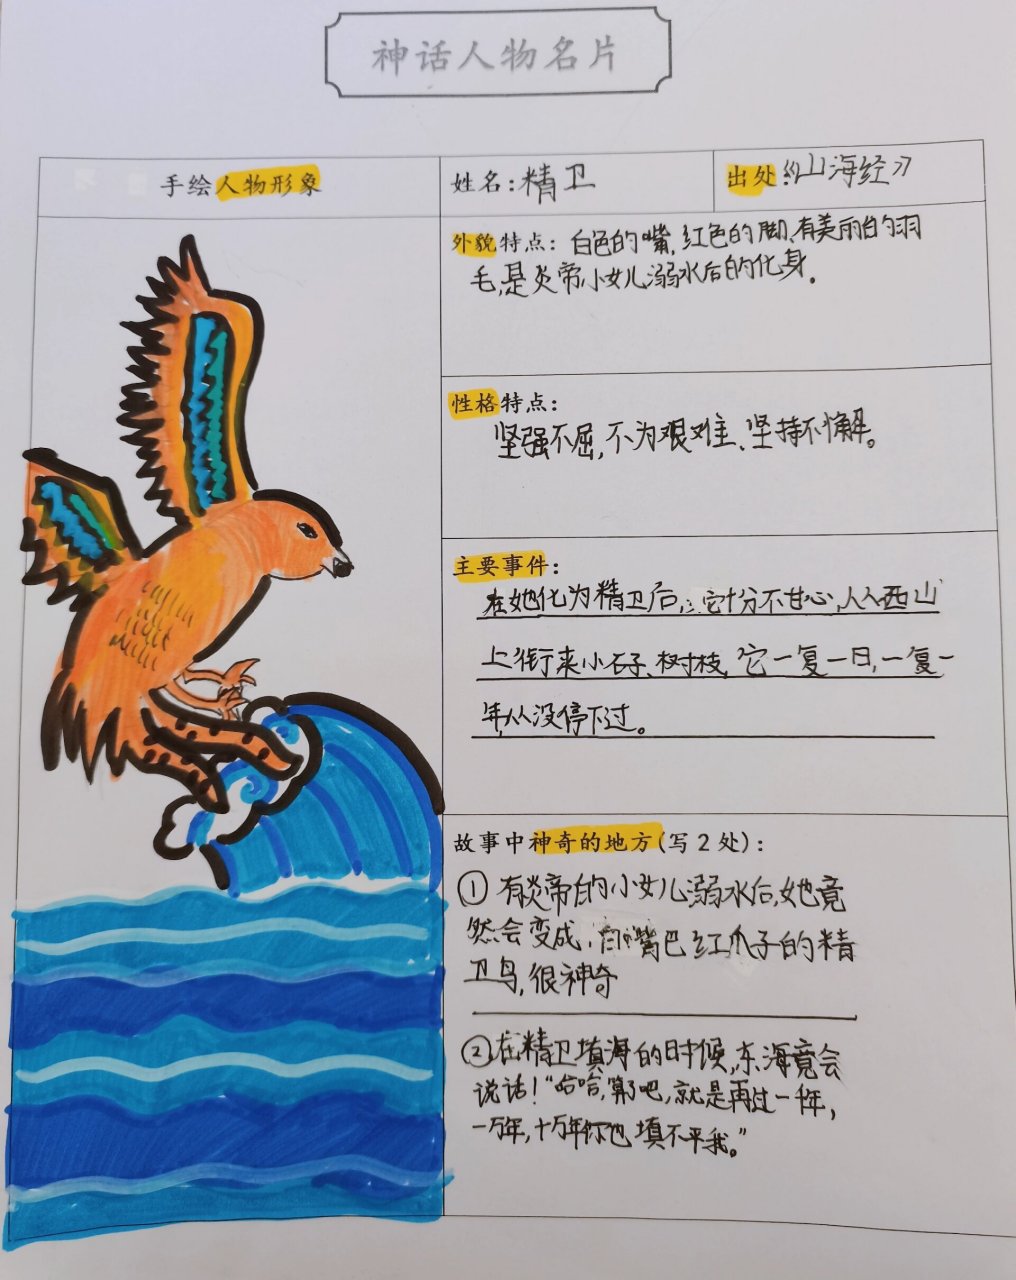 神话人物名片
手绘人物形象
姓名:精卫
出处:《山海经》
外貌特点: 白色的嘴,红色的脚、有美丽的羽
毛,是炎帝小女儿溺水后的化身.
性格特点:
坚强不屈,不为艰难、坚持不懈。
主要事件:
在她化为精卫后,它十分不甘心,从西山
上衔来小石子、树枝,它一复一日,一复一
年,从没停下过。
故事中神奇的地方(写2处):
① 有炎帝的小女儿溺水后,她竟
然会变成,白嘴巴红爪子的精
卫鸟,很神奇
②在精卫填海的时候,东海竟会
说话!“哈哈,算了吧,就是再过一千年,
一万年,十万年你也填不平我。”